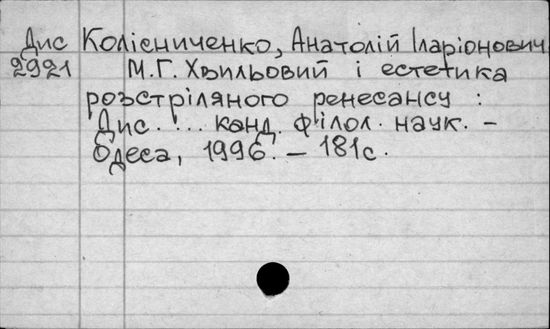 Дис Колісниченко, Анатолій Іларіонович
2921 М.Г. Хвильовий і естетика
розстріляного ренесансу :
Дис. ... канд. філол. наук. –
Одеса, 1996. – 181с.